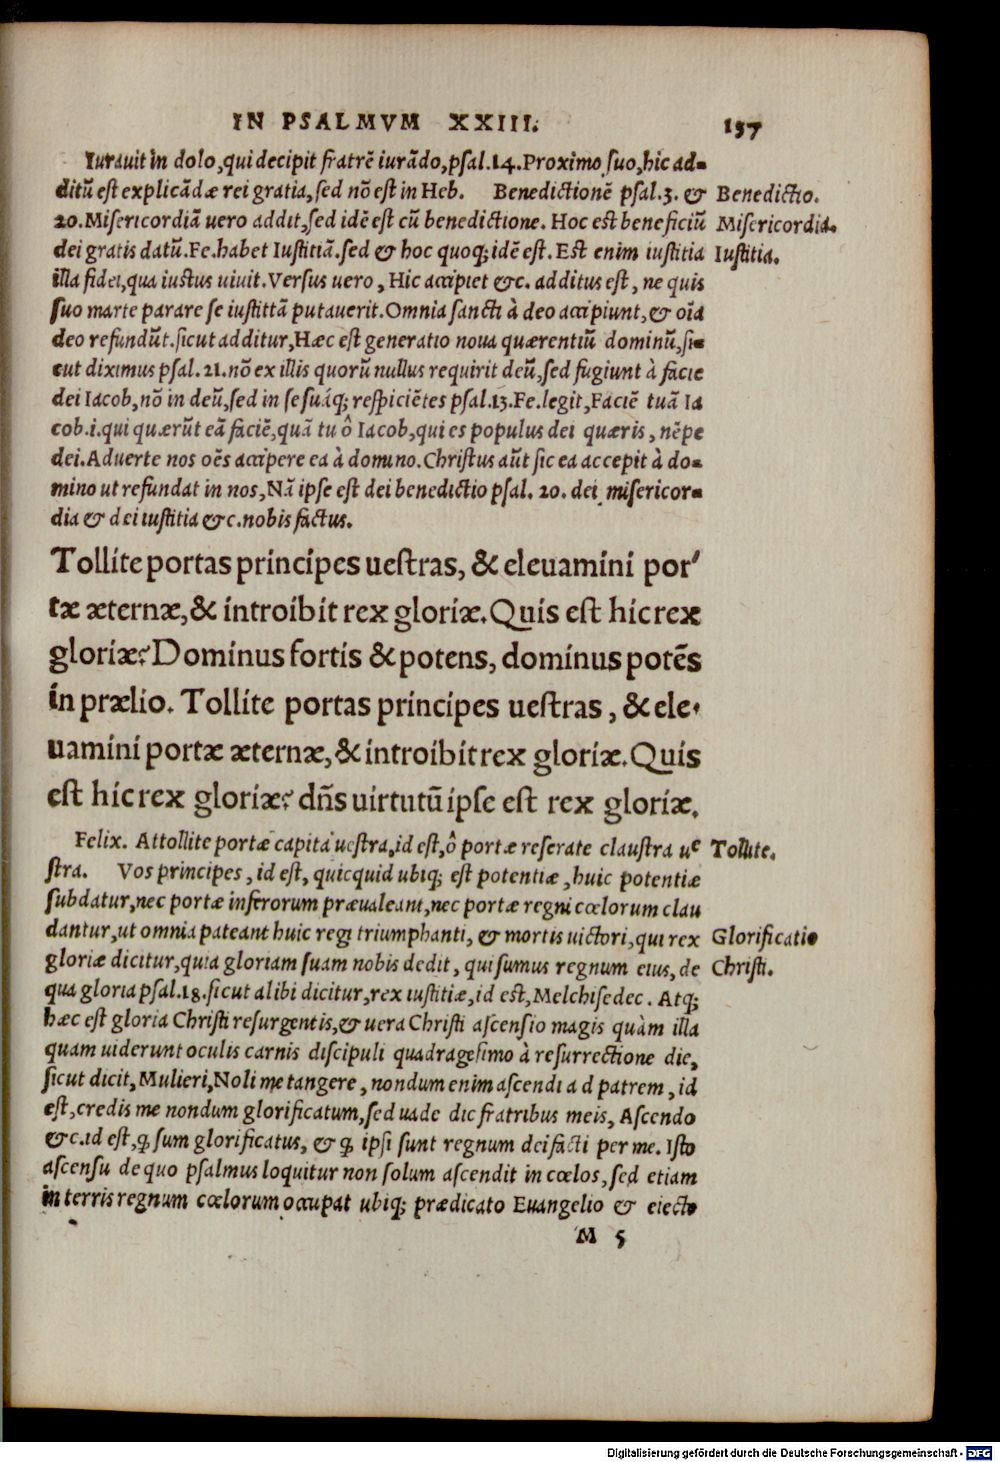 IN PSALMVM XXIII. 137
Iurauit in dolo, qui decipit fratrē iurādo, psal.14. Proximo suo, hic ad-
ditū est explicādæ rei gratia, sed nō est in Heb. Benedictionē psal.3. & Benedictio.
20. Misericordiā uero addit, sed idē est cū benedictione. Hoc est beneficiū Misericordia.
dei gratis datū. Fe. habet Iustitiā. sed & hoc quoq; idē est. Est enim iustitia Iustitia.
illa fidei, qua iustus uiuit. Versus uero, Hic accipiet &c. additus est, ne quis
suo marte parare se iustitiā putauerit. Omnia sancti à deo accipiunt, & oīa
deo refundūt. sicut additur, Hæc est generatio noua quærentiū dominū, si-
cut diximus psal.21. nō ex illis quorū nullus requirit deū, sed fugiunt à facie
dei Iacob, nō in deū, sed in se suáq; respiciētes psal.13. Fe. legit, Faciē tuā Ia
cob.i. qui quærūt eā faciē, quā tu ô Iacob, qui es populus dei quæris, nēpe
dei. Aduerte nos oēs accipere ea à domino. Christus aūt sic ea accepit à do-
mino ut refundat in nos, Nā ipse est dei benedictio psal. 20. dei misericor-
dia & dei iustitia &c. nobis factus.
Tollite portas principes uestras, & eleuamini por-
tæ æternæ, & introibit rex gloriæ. Quis est hic rex
gloriæ? Dominus fortis & potens, dominus potēs
in prælio. Tollite portas principes uestras, & ele-
uamini portæ æternæ, & introibit rex gloriæ. Quis
est hic rex gloriæ? dn̄s uirtutū ipse est rex gloriæ.
Felix. Attollite portæ capita uestra, id est, ô portæ reserate claustra ue Tollite.
stra. Vos principes, id est, quicquid ubiq; est potentiæ, huic potentiæ
subdatur, nec portæ inferorum præualeant, nec portæ regni cœlorum clau
dantur, ut omnia pateant huic regi triumphanti, & mortis uictori, qui rex Glorificatio
gloriæ dicitur, quia gloriam suam nobis dedit, qui sumus regnum eius, de Christi.
qua gloria psal.18. sicut alibi dicitur, rex iustitiæ, id est, Melchisedec. Atq;
hæc est gloria Christi resurgentis, & uera Christi ascensio magis quàm illa
quam uiderunt oculis carnis discipuli quadragesimo à resurrectione die,
sicut dicit, Mulieri, Noli me tangere, nondum enim ascendi ad patrem, id
est, credis me nondum glorificatum, sed uade dic fratribus meis, Ascendo
&c. id est, ꝙ sum glorificatus, & ꝙ ipsi sunt regnum dei facti per me. Isto
ascensu de quo psalmus loquitur non solum ascendit in cœlos, sed etiam
in terris regnum cœlorum occupat ubiq; prædicato Euangelio & eiecto
M 5
Digitalisierung gefördert durch die Deutsche Forschungsgemeinschaft - DFG